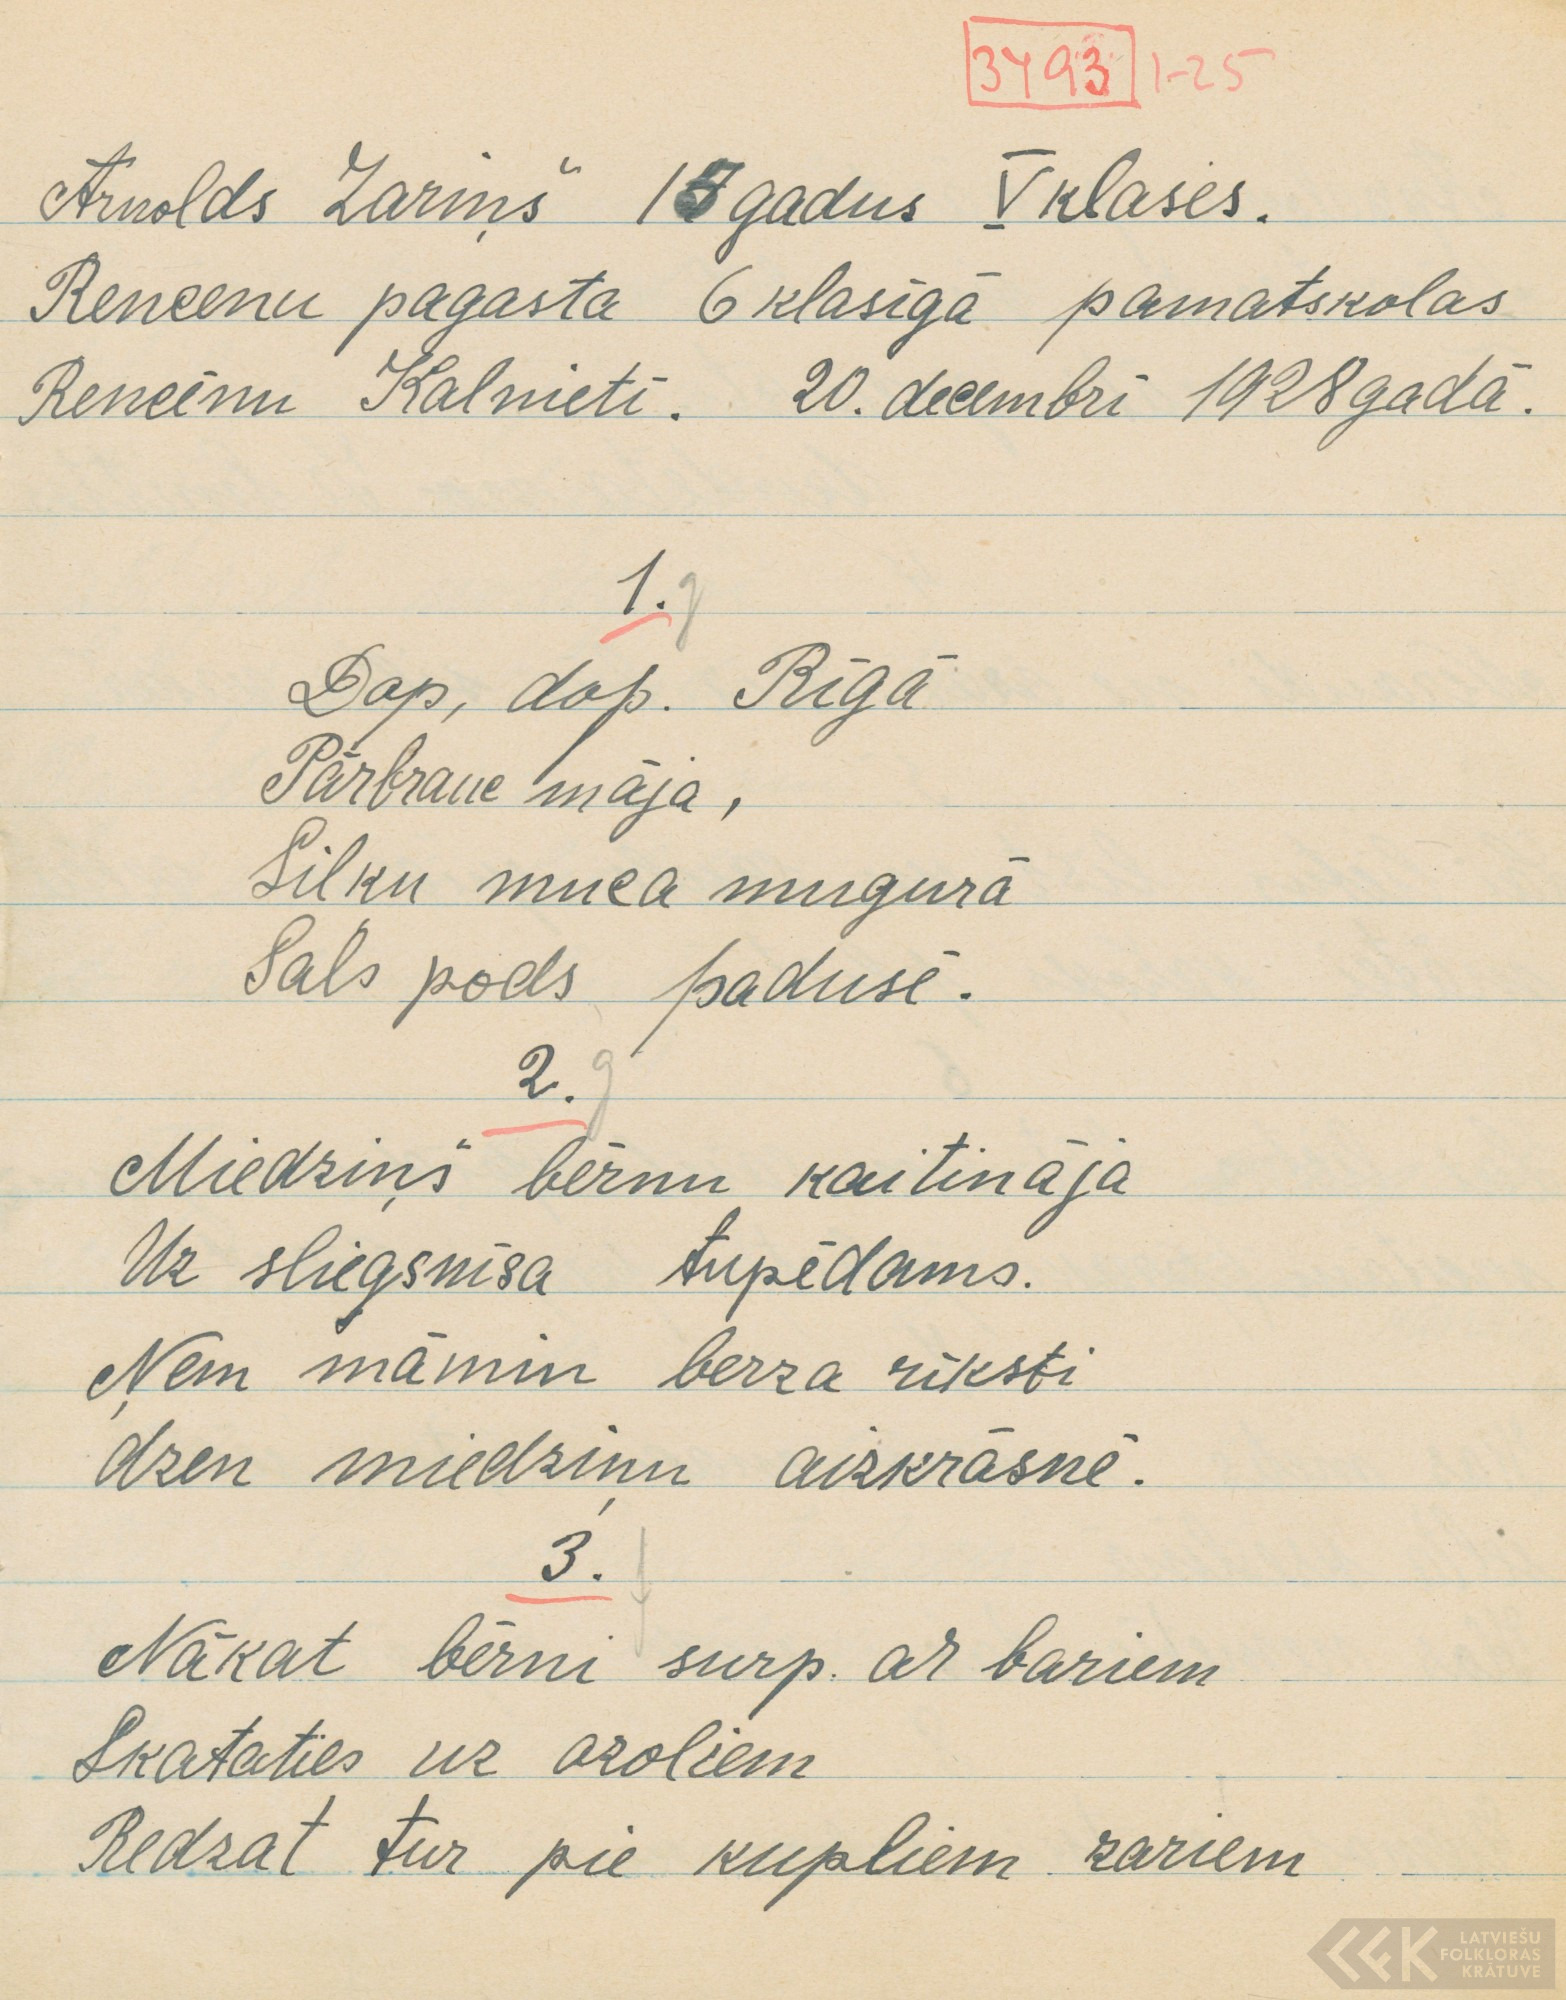 3493 1-25
Arnolds Zariņš gadus V klases.
Rencenu pagasta 6 klasīgā pamatskolas
Rencēnu Kalnieti. 20. decembrī 1928 gadā.
1.
Dop, dop. Rīgā
Pārbrauc māja,
Silku muca mugurā
Sals pods padusē.
2.
Miedziņš bērnu kaitināja
Uz sliegsnīsa tupēdams.
Ņem māmin berza rīksti
dzen miedziņu aizkrāsnē.
3.
Nākat bērni surp. ar bariem
Skataties uz ozoliem
Redzat tur pie kupliem zariem
LATVIEŠU
FOLKLORAS
KRĀTUVE